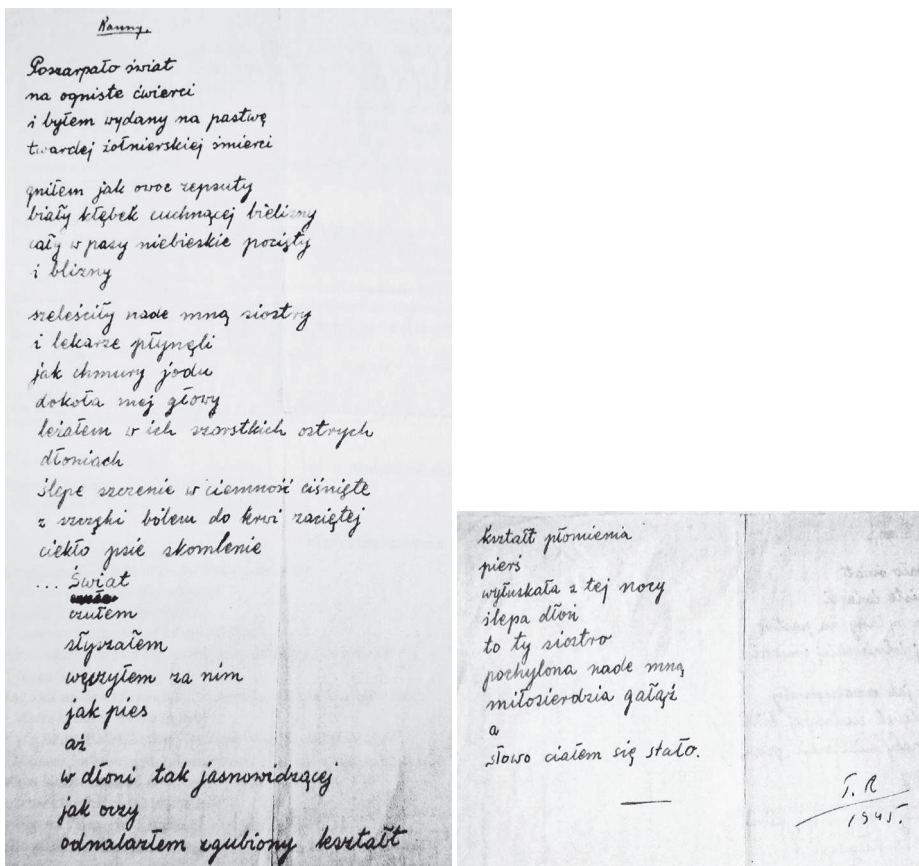 Ranny.
Poszarpało świat
na ogniste ćwierci
i byłem wydany na pastwę
twardej żołnierskiej śmierci
gniłem jak owoc zepsuty
biały kłębek cuchnącej bielizny
cały w pasy niebieskie pocięty
i blizny
szeleściły nade mną siostry
i lekarze płynęli
jak chmury jodu
dokoła mej głowy
leżałem w ich szorstkich ostrych
dłoniach
ślepe szczenię w ciemność ciśnięte
z szczęki bólem do krwi zaciętej
ciekło psie skomlenie
... Świat
czułem
słyszałem
węszyłem za nim
jak pies
aż
w dłoni tak jasnowidzącej
jak oczy
odnalazłem zgubiony kształt
kształt płomienia
pierś
wyłuskała z tej nocy
ślepa dłoń
to ty siostro
pochylona nade mną
miłosierdzia gałąź
a
słowo ciałem się stało.
T. R
1945.